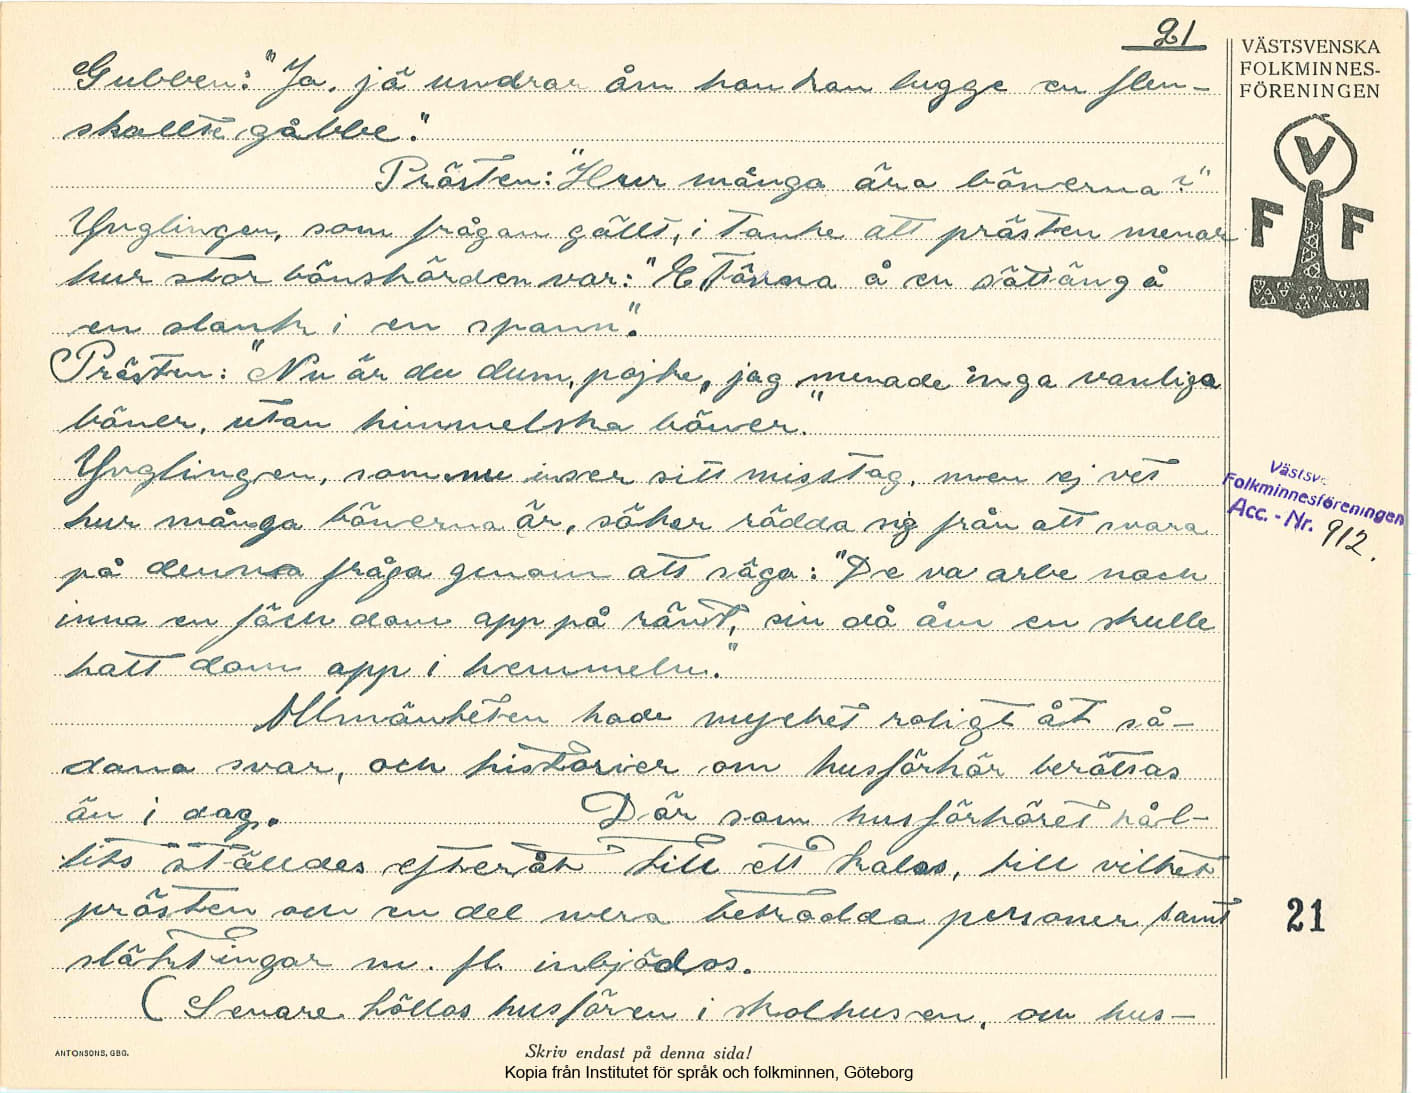 21
VÄSTSVENSKA
FOLKMINNES-
FÖRENINGEN
V
F F
Gubben: "Ja, jä undrar åm han kan lugge en flen-
skallte gåbbe".
Prästen: "Hur många ära bönerna?"
Ynglingen, som frågan gällt, i tanke att prästen menar
hur stor bönskörden var: "E tönna å en sättäng å
en slank i en spann".
Prästen: "Nu är du dum, pojke, jag menade inga vanliga
böner, utan himmelska böner."
Ynglingen, som nu inser sitt misstag, men ej vet
hur många bönerna är, söker rädda sig från att svara
på denna fråga genom att säga: "De va arbe nock
inna en föck dom app på ränt, sin då åm en skulle
hatt dom app i hemmeln."
Allmänheten hade mycket roligt åt så-
dana svar, och historier om husförhör berättas
än i dag. Där som husförhöret hål-
lits ställdes efteråt till ett kalas, till vilket
prästen och en del mera betrodda personer samt
släktingar m. fl. inbjödos.
(Senare höllos husfören i skolhusen, och hus-
Västsv.
Folkminnesföreningen
Acc. - Nr. 912.
21
ANTONSONS, GBG.
Skriv endast på denna sida!
Kopia från Institutet för språk och folkminnen, Göteborg